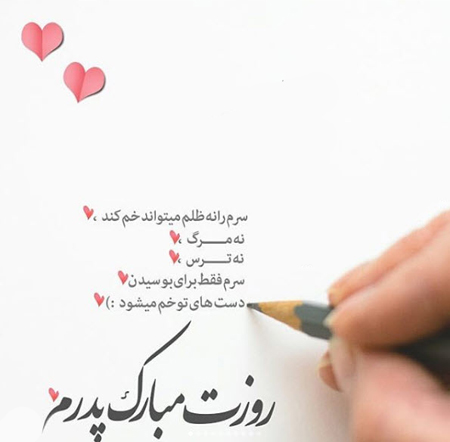 سرم را نه ظلم میتواند خم کند ،
نه مـــرگ ،
نه تـــــرس ،
سرم فقط برای بوسیدن
دست های تو خم میشود :)
روزت مبارک پدرم